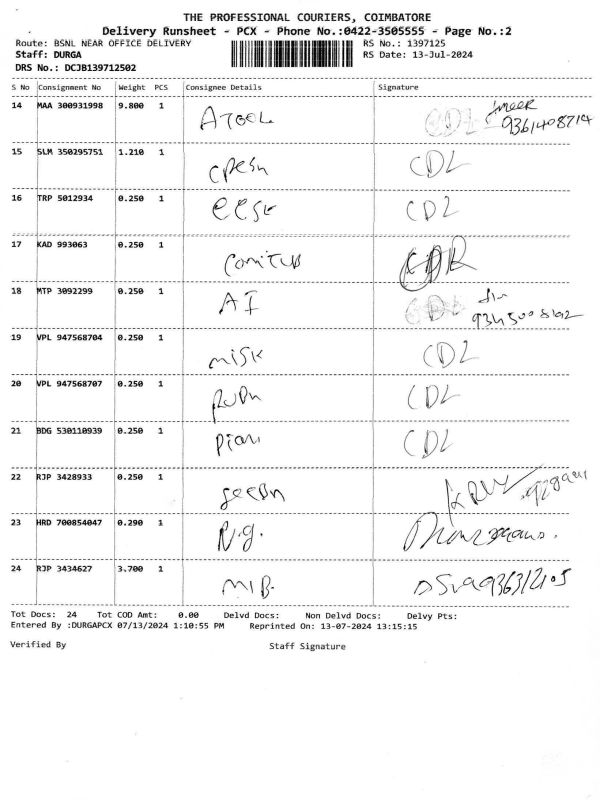 THE PROFESSIONAL COURIERS, COIMBATORE
Delivery Runsheet - PCX - Phone No.:0422-3505555 - Page No.:2
Route: BSNL NEAR OFFICE DELIVERY RS No.: 1397125
Staff: DURGA RS Date: 13-Jul-2024
DRS No.: DCJB139712502
S No Consignment No Weight PCS Consignee Details Signature
14 MAA 300931998 9.800 1 CDL
9361408714
15 SLM 350295751 1.210 1 CDL
16 TRP 5012934 0.250 1 CDL
17 KAD 993063 0.250 1
18 MTP 3092299 0.250 1 AI CDL
19 VPL 947568704 0.250 1 misk CDL
20 VPL 947568707 0.250 1 CDL
21 BDG 530110939 0.250 1 CDL
22 RJP 3428933 0.250 1
23 HRD 700854047 0.290 1 R.g.
24 RJP 3434627 3.700 1 MIB
Tot Docs: 24 Tot COD Amt: 0.00 Delvd Docs: Non Delvd Docs: Delvy Pts:
Entered By :DURGAPCX 07/13/2024 1:10:55 PM Reprinted On: 13-07-2024 13:15:15
Verified By Staff Signature